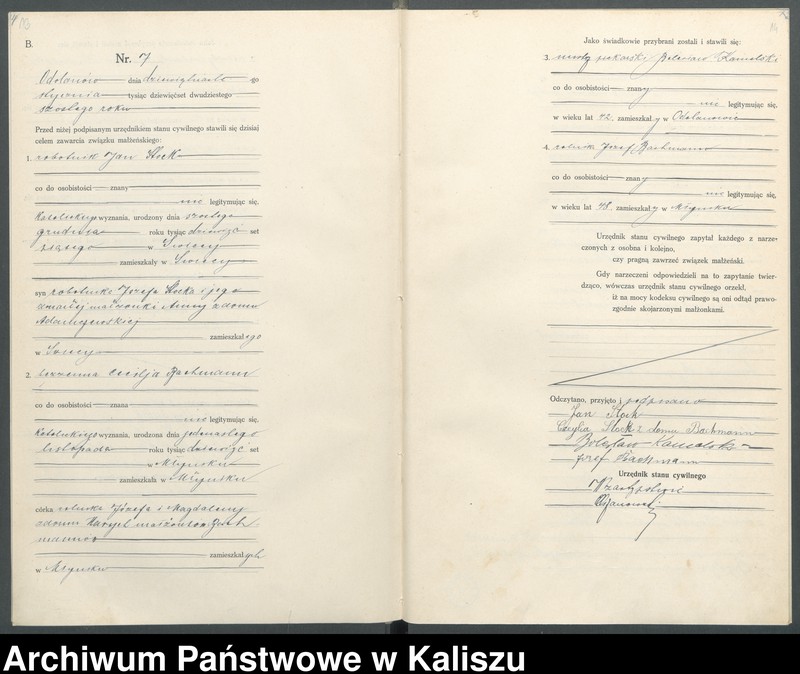 B.
Nr. 7
Odolanów dnia dziewiętnasto go
stycznia tysiąc dziewięćset dwudziestego
szóstego roku
Przed niżej podpisanym urzędnikiem stanu cywilnego stawili się dzisiaj
celem zawarcia związku małżeńskiego:
1. robotnik Jan Stock
co do osobistości znany
nie legitymując się.
katolickiego wyznania, urodzony dnia szóstego
grudnia roku tysiąc dziewięć set
w
zamieszkały w
syn robotnika Józefa Stocka i jego
zmarłej małżonki Anny z domu
Adamkiewskiej
zamieszkał ego
w
2. Cecilja Bachmann
co do osobistości znana
nie legitymując się.
katolickiego wyznania, urodzona dnia jedenastego
listopada roku tysiąc dziewięć set
w Młyniku
zamieszkała w Młyniku
córka rolnika Józefa i Magdaleny
z domu małżonków Bach
mannów
zamieszkał ych
w Młyniku
Jako świadkowie przybrani zostali i stawili się:
3. piekarski Bolesław Kamolski
co do osobistości znany
nie legitymując się,
w wieku lat 42. zamieszkały w Odolanowie
4. rolnik Józef Bachmann
co do osobistości znany
nie legitymując się,
w wieku lat 48. zamieszkały w Młyniku
Urzędnik stanu cywilnego zapytał każdego z narze-
czonych z osobna i kolejno,
czy pragną zawrzeć związek małżeński.
Gdy narzeczeni odpowiedzieli na to zapytanie twier-
dząco, wówczas urzędnik stanu cywilnego orzekł,
iż na mocy kodeksu cywilnego są oni odtąd prawo-
zgodnie skojarzonymi małżonkami.
Odczytano, przyjęto i podpisano
Jan Stock
Cecylia Stock z domu Bachmann
Bolesław Kamolski
Józef Bachmann
Urzędnik stanu cywilnego
W zastępstwie
Archiwum Państwowe w Kaliszu